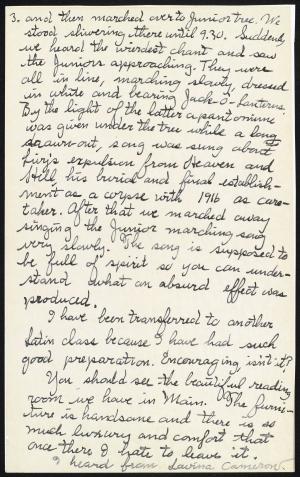 3. and then marched over to Junior tree. We
stood shivering there until 9.30. Suddenly
we heard the weirdest chant and saw
the Juniors approaching. They were
all in line, marching slowly, dressed
in white and bearing Jack-O-Lanterns.
By the light of the latter a pantomime
was given under the tree while a long
drawn-out, song was sung about
expulsion from Heaven and
Hell his burial and final establish-
ment as a corpse with 1916 as care-
taker. After that we marched away
singing the Junior marching song
very slowly. The song is supposed to
be full of spirit so you can under-
stand what an absurd effect was
produced.
I have been transferred to another
Latin class because I have had such
good preparation. Encouraging, isn't it?
You should see the beautiful reading
room we have in Main. The furni-
ture is handsome and there is so
much luxury and comfort that
once there I hate to leave it.
I heard from Lavina Cameron.